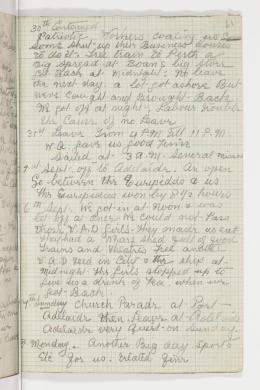 30th Continued
Patriotic. Workers coaling us
Some shut up their Business houses
to do it. Free train to Perth a
Big Spread at Boans big Store
Got Back at midnight: No leave
the next day. a lot got ashore But
were Caught and Brought Back.
We got off at night. Labour Trouble
the Cause of no leave
31st Leave from 4 P.M. till 11 P.M.
W.A. gave us good Time
Sailed at 3 a.m. General
Sept. off to Adelaide. An open
Go between the Euripides & us
The Euripides won by 2 1/2 hours
6th Sept. We got in at Noon & was
let off at once We could not Pass
those V.A.D Girls. They made us eat
They had a Whare Shed full of good
Trains and Theatre free
V.A.D feed in City & the ship at
midnight. The Girls stopped up to
give us a drink of Tea. when we
got Back.
7th Sunday Church Parade at Port
Adelaide then Leave at
Adelaide very Quiet on Sunday.
8 Monday. Another Big day Sports
Etc for us. time